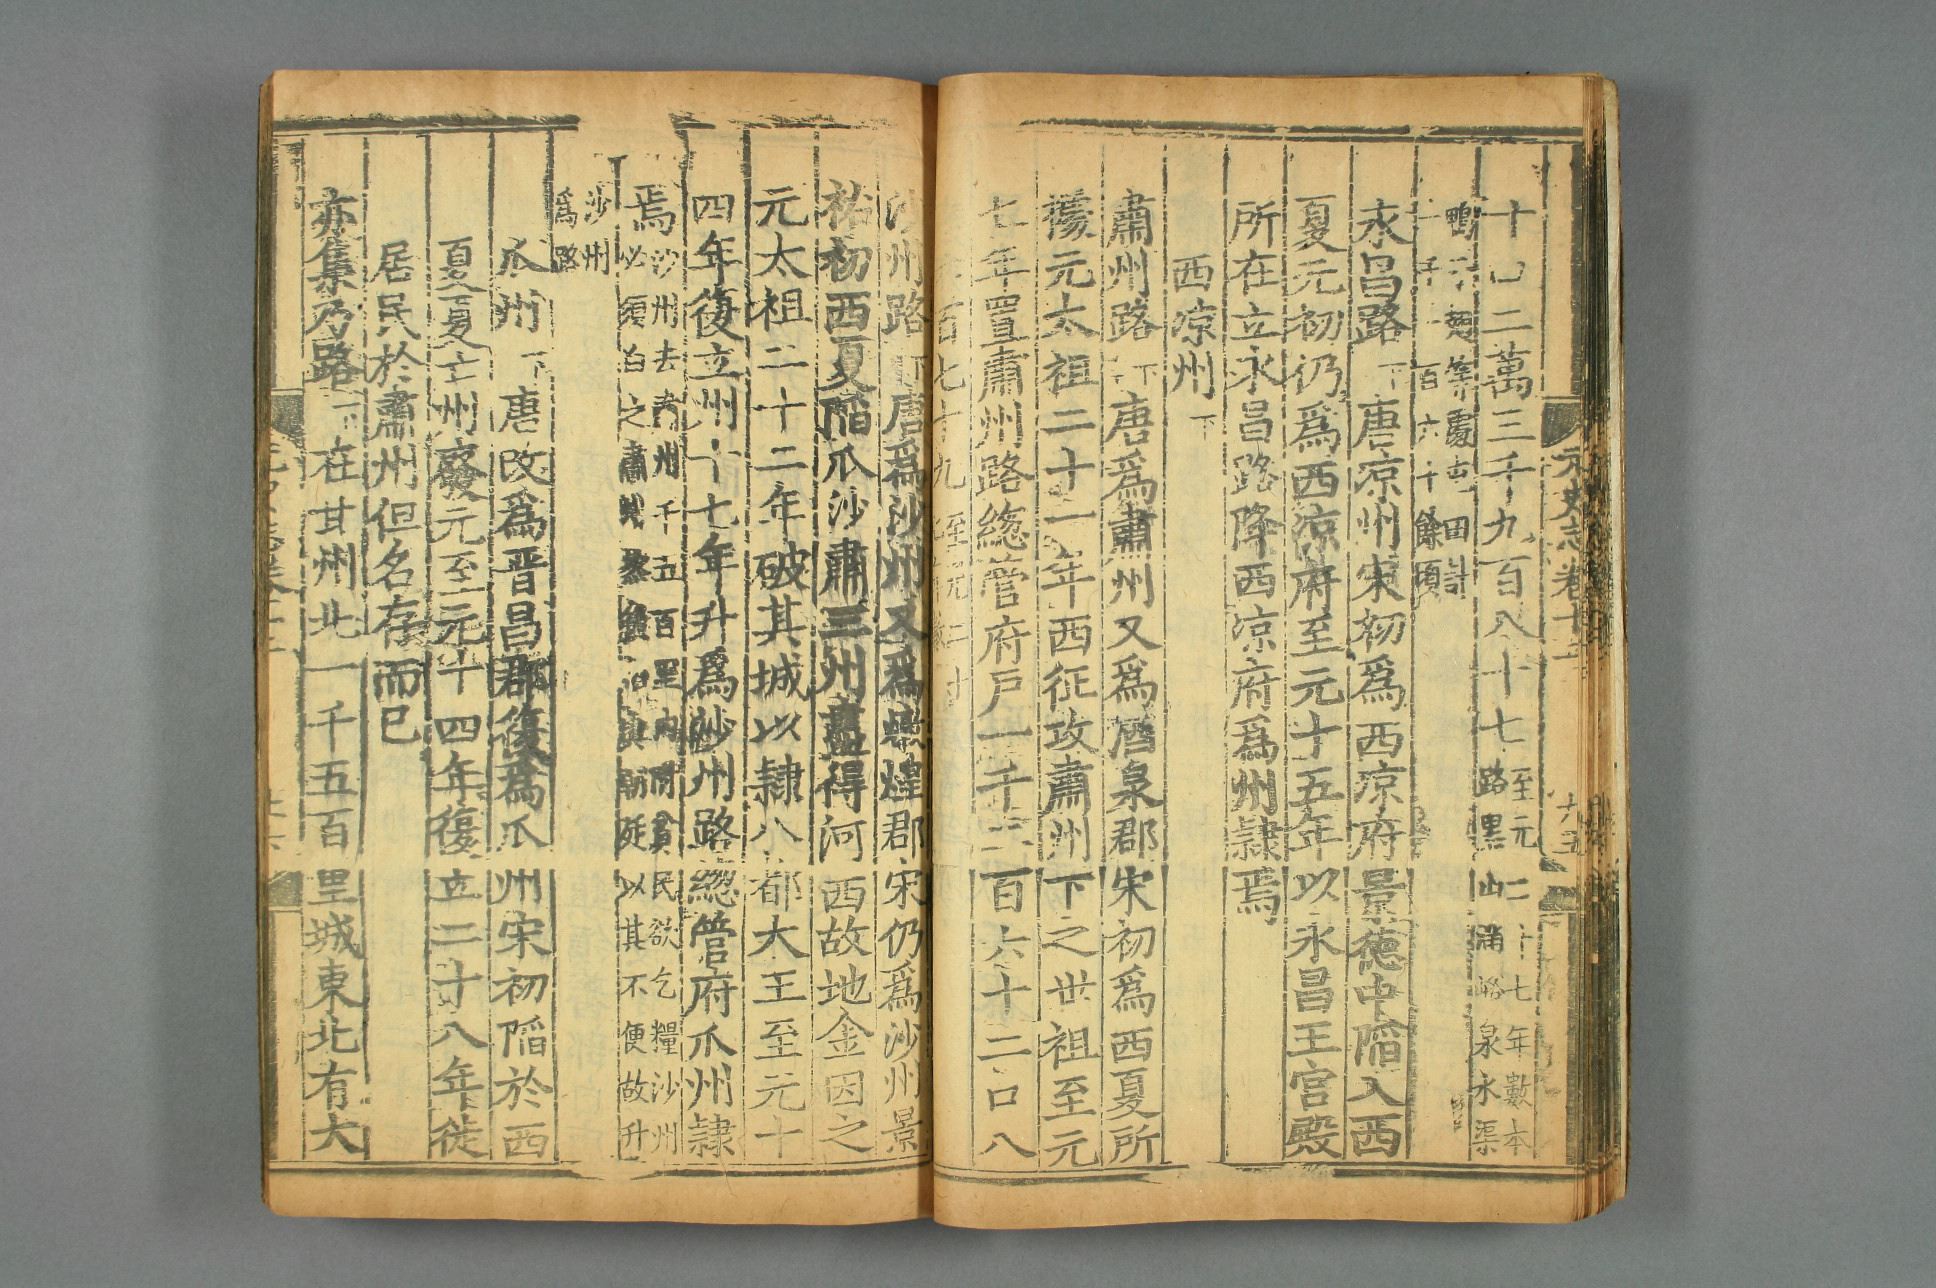 元史志卷十二
十五
十口二萬三千九百八十七至元二十七年數本路黑山滿峪泉水渠
鴨子翅等處屯田計一千一百六十餘頃
永昌路下唐凉州宋初爲西凉府景德中陷入西
夏元初仍爲西凉府至元十五年以永昌王宮殿
所在立永昌路降西凉府爲州隷焉
西凉州下
肅州路下唐爲肅州又爲酒泉郡宋初爲西夏所
據元太祖二十一年西征攻肅州下之世祖至元
七年置肅州路緫管府戶一千二百六十二口八
百七十九至元
沙州路下唐爲沙州又爲燉煌郡宋仍爲沙州景
祐初西夏陷瓜沙肅三州盡得河西故地金因之
元太祖二十二年破其城以隷八都大王至元十
四年復立州十七年升爲沙州路緫管府瓜州隷
焉沙州去肅州千五百里內附貧民欲乞糧沙州必須白之肅州然後給與朝廷以其不便故升
沙州爲路
瓜州下唐改爲晋昌郡復爲瓜州宋初陷於西
夏夏亡州廢元至元十四年復立二十八年徙
居民於肅州但名存而已
亦集乃路下在甘州北一千五百里城東北有大